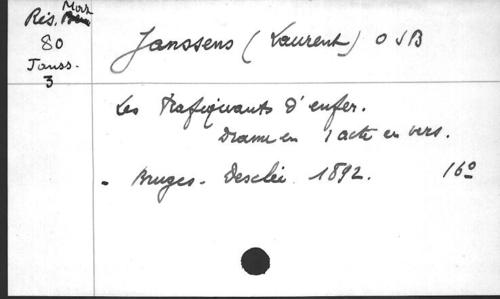 Rés. Mors
80
Janss.
3
Janssens (Laurent) O S B
Les Trafiquants d'enfer.
Drame en 1 acte en vers.
- Bruges - Desclée 1892. 16º